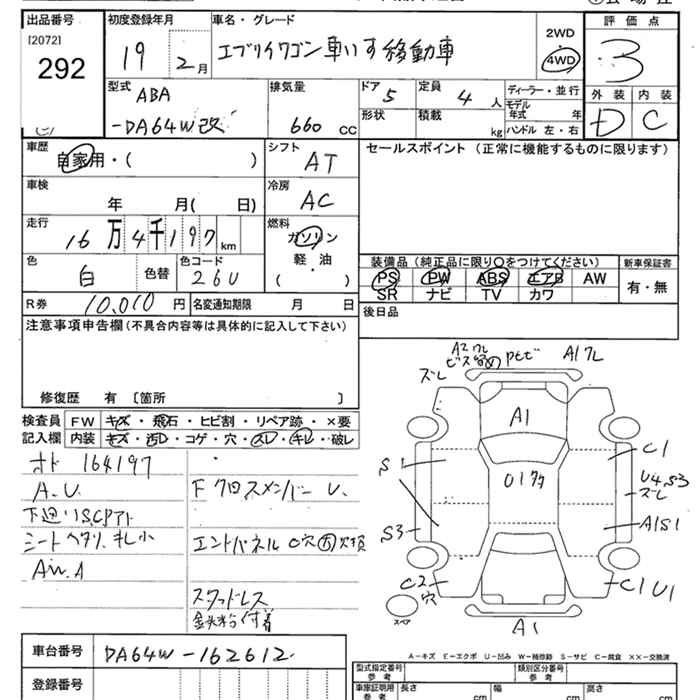 出品番号
[2072]
292
初度登録年月
19 2月
車名・グレード
エブリイワゴン 車いす移動車
2WD
4WD
評価点
3
型式
ABA
-DA64W改
排気量
660 CC
ドア
5
定員
4 人
形状
積載
kg
ディーラー・並行
モデル
年式 年
ハンドル 左・右
外装 内装
D C
車歴
自家用・( )
シフト
AT
セールスポイント (正常に機能するものに限ります)
車検
年 月( 日)
冷房
AC
走行
16万4千197km
燃料
ガソリン
軽・油
( )
色
白 色替
色コード
26U
装備品(純正品に限り○をつけてください)
PS PW ABS エアB AW
SR ナビ TV カワ
新車保証書
有・無
R券 10,010 円
名変通知期限 月 日
後日品
注意事項申告欄(不具合内容等は具体的に記入して下さい)
修復歴 有 〔箇所 〕
検査員
記入欄
FW キズ・飛石・ヒビ割・リペア跡・×要
内装 キズ・汚レ・コゲ・穴・スレ・キレ・破レ
オド 164197
A.U.
下廻りS,Cアト
シートヘタリ、キレ小
Fクロスメンバー U.
エンドパネル C穴
スタッドレス
鉄粉付着
A1ワレ
ズレ
A1
S1
C1
U4S3
ズレ
S3
A1S1
C2
穴
C1U1
スペア
A1
A-キズ E-エクボ U-凹み W-補修跡 S-サビ C-腐食 ××-交換済
車台番号 DA64W-162612
登録番号
型式指定番号
参考
類別区分番号
参考
車庫証明用
参考
長さ
cm
幅
cm
高さ
cm